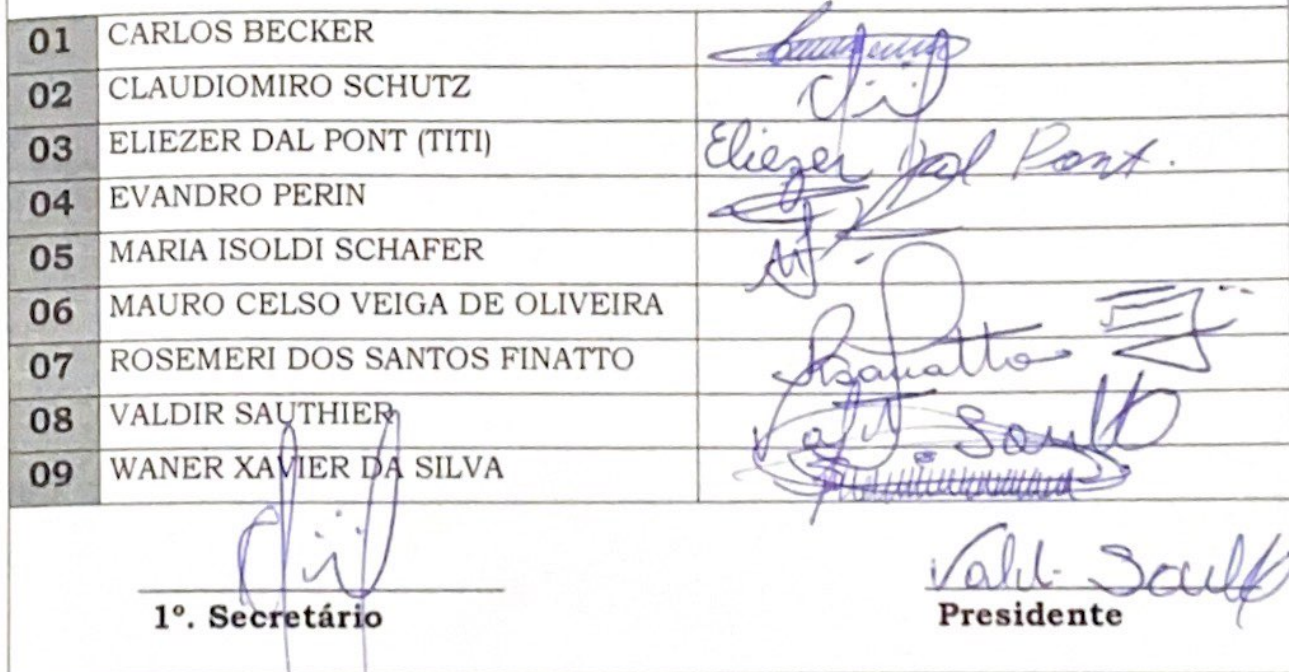 01 CARLOS BECKER
02 CLAUDIOMIRO SCHUTZ
03 ELIEZER DAL PONT (TITI) Eliezer Dal Pont.
04 EVANDRO PERIN
05 MARIA ISOLDI SCHAFER
06 MAURO CELSO VEIGA DE OLIVEIRA
07 ROSEMERI DOS SANTOS FINATTO
08 VALDIR SAUTHIER
09 WANER XAVIER DA SILVA
1º. Secretário
Presidente